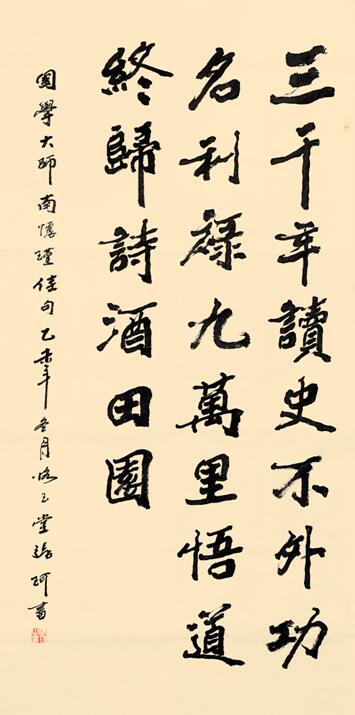 三千年讀史不外功
名利祿九萬里悟道
終歸詩酒田園
國學大師南懷瑾佳句乙未年冬月 堂 珂書